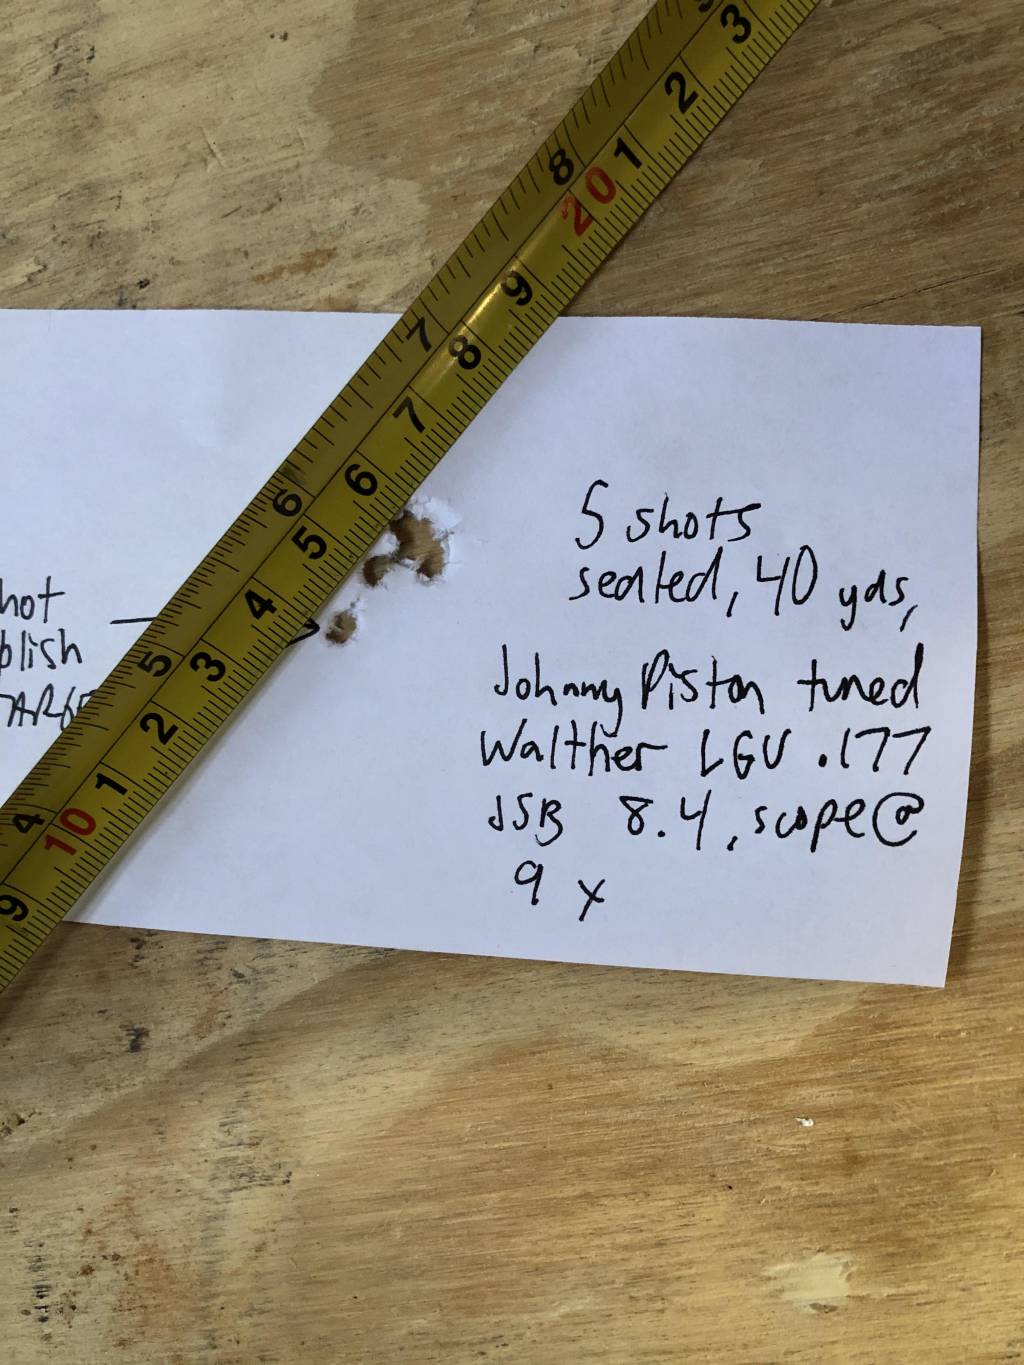 3
2
1
8
20
9
7
8
7
6
6
5
4
5
3
2
1
4
10
9
5 shots
seated, 40 yds,
Johnny Piston tuned
Walther LGU .177
JSB 8.4, scope@
9 x